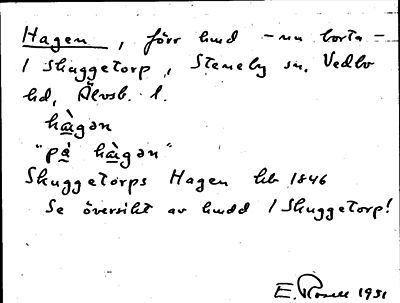 Hagen, förr hmd - nu borta -
/ Skuggetorp, Steneby sn. Vedbo
hd, Älvsb. l.
hà̱gən
"på̱ hà̱gən"
Skuggetorps Hagen hb 1846
Se översikt av hmdd / Skuggetorp!
E. Rosell 1931